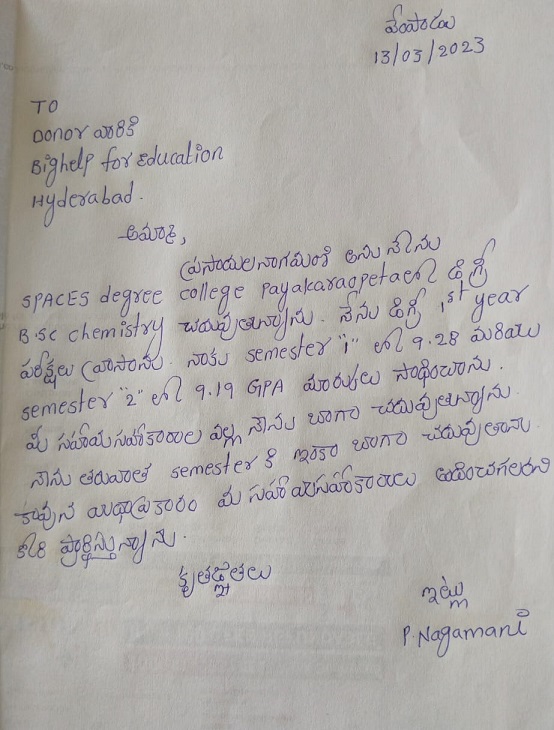 వేంపాడు
13/03/2023
TO
Donor వారికి
Bighelp for Education
Hyderabad.
అమ్మా,
ప్రసాదుల నాగమణి అను నేను
SPACES degree college payakaraopeta లో డిగ్రీ
B.SC chemistry చదువుతున్నాను. నేను డిగ్రీ 1st year
పరీక్షలు వ్రాసాను. నాకు semester "1" లో 9.28 మరియు
semester "2" లో 9.19 GPA మార్కులు సాధించాను.
మీ సహాయసహకారాల వల్ల నేను బాగా చదువుతున్నాను.
నేను తరువాత semester కి ఇంకా బాగా చదువుతాను
కావున యధాప్రకారం మీ సహాయసహకారాలు అందించగలరని
కోరి ప్రార్థిస్తున్నాను.
కృతజ్ఞతలు
ఇట్లు
P. Nagamani